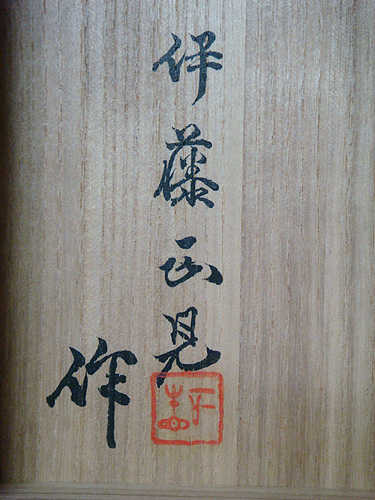 伊藤正見
作